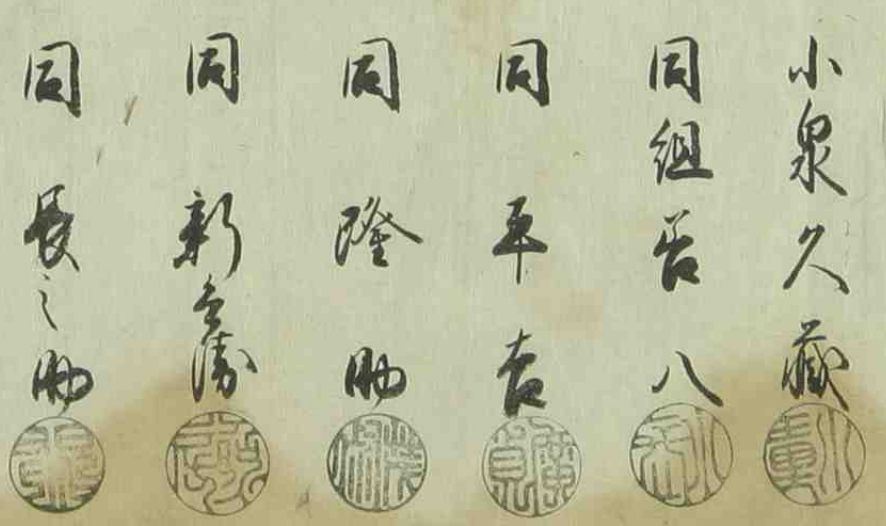 小泉久藏
同組 八
同 平吉
同 隆助
同 新兵衛
同 長之助